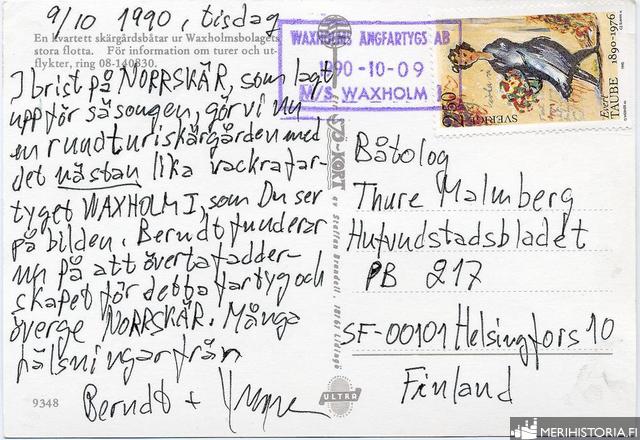 9/10 1990, tisdag
En kvartett skärgårdsbåtar ur Waxholmsbolagets
stora flotta. För information om turer och ut-
flykter, ring 08-140830.
I brist på NORRSKÄR, som lagt
upp för säsongen, gör vi nu
en rundtur i skärgården med
det nästan lika vackra far-
tyget WAXHOLM I, som Du ser
på bilden. Berndt funderar
nu på att överta fadder-
skapet för detta fartyg och
överge NORRSKÄR. Många
hälsningar från
Berndt +
9348
WAXHOLMS ÅNGFARTYGS AB
1990-10-09
M/S WAXHOLM I
SVERIGE
250
Evert
TAUBE 1890-1976
-KORT
av Staffan
Lidingö
ULTRA
Båtolog
Thure Malmberg
Hufvudstadsbladet
PB 217
SF-00101 Helsingfors 10
Finland
MERIHISTORIA.FI